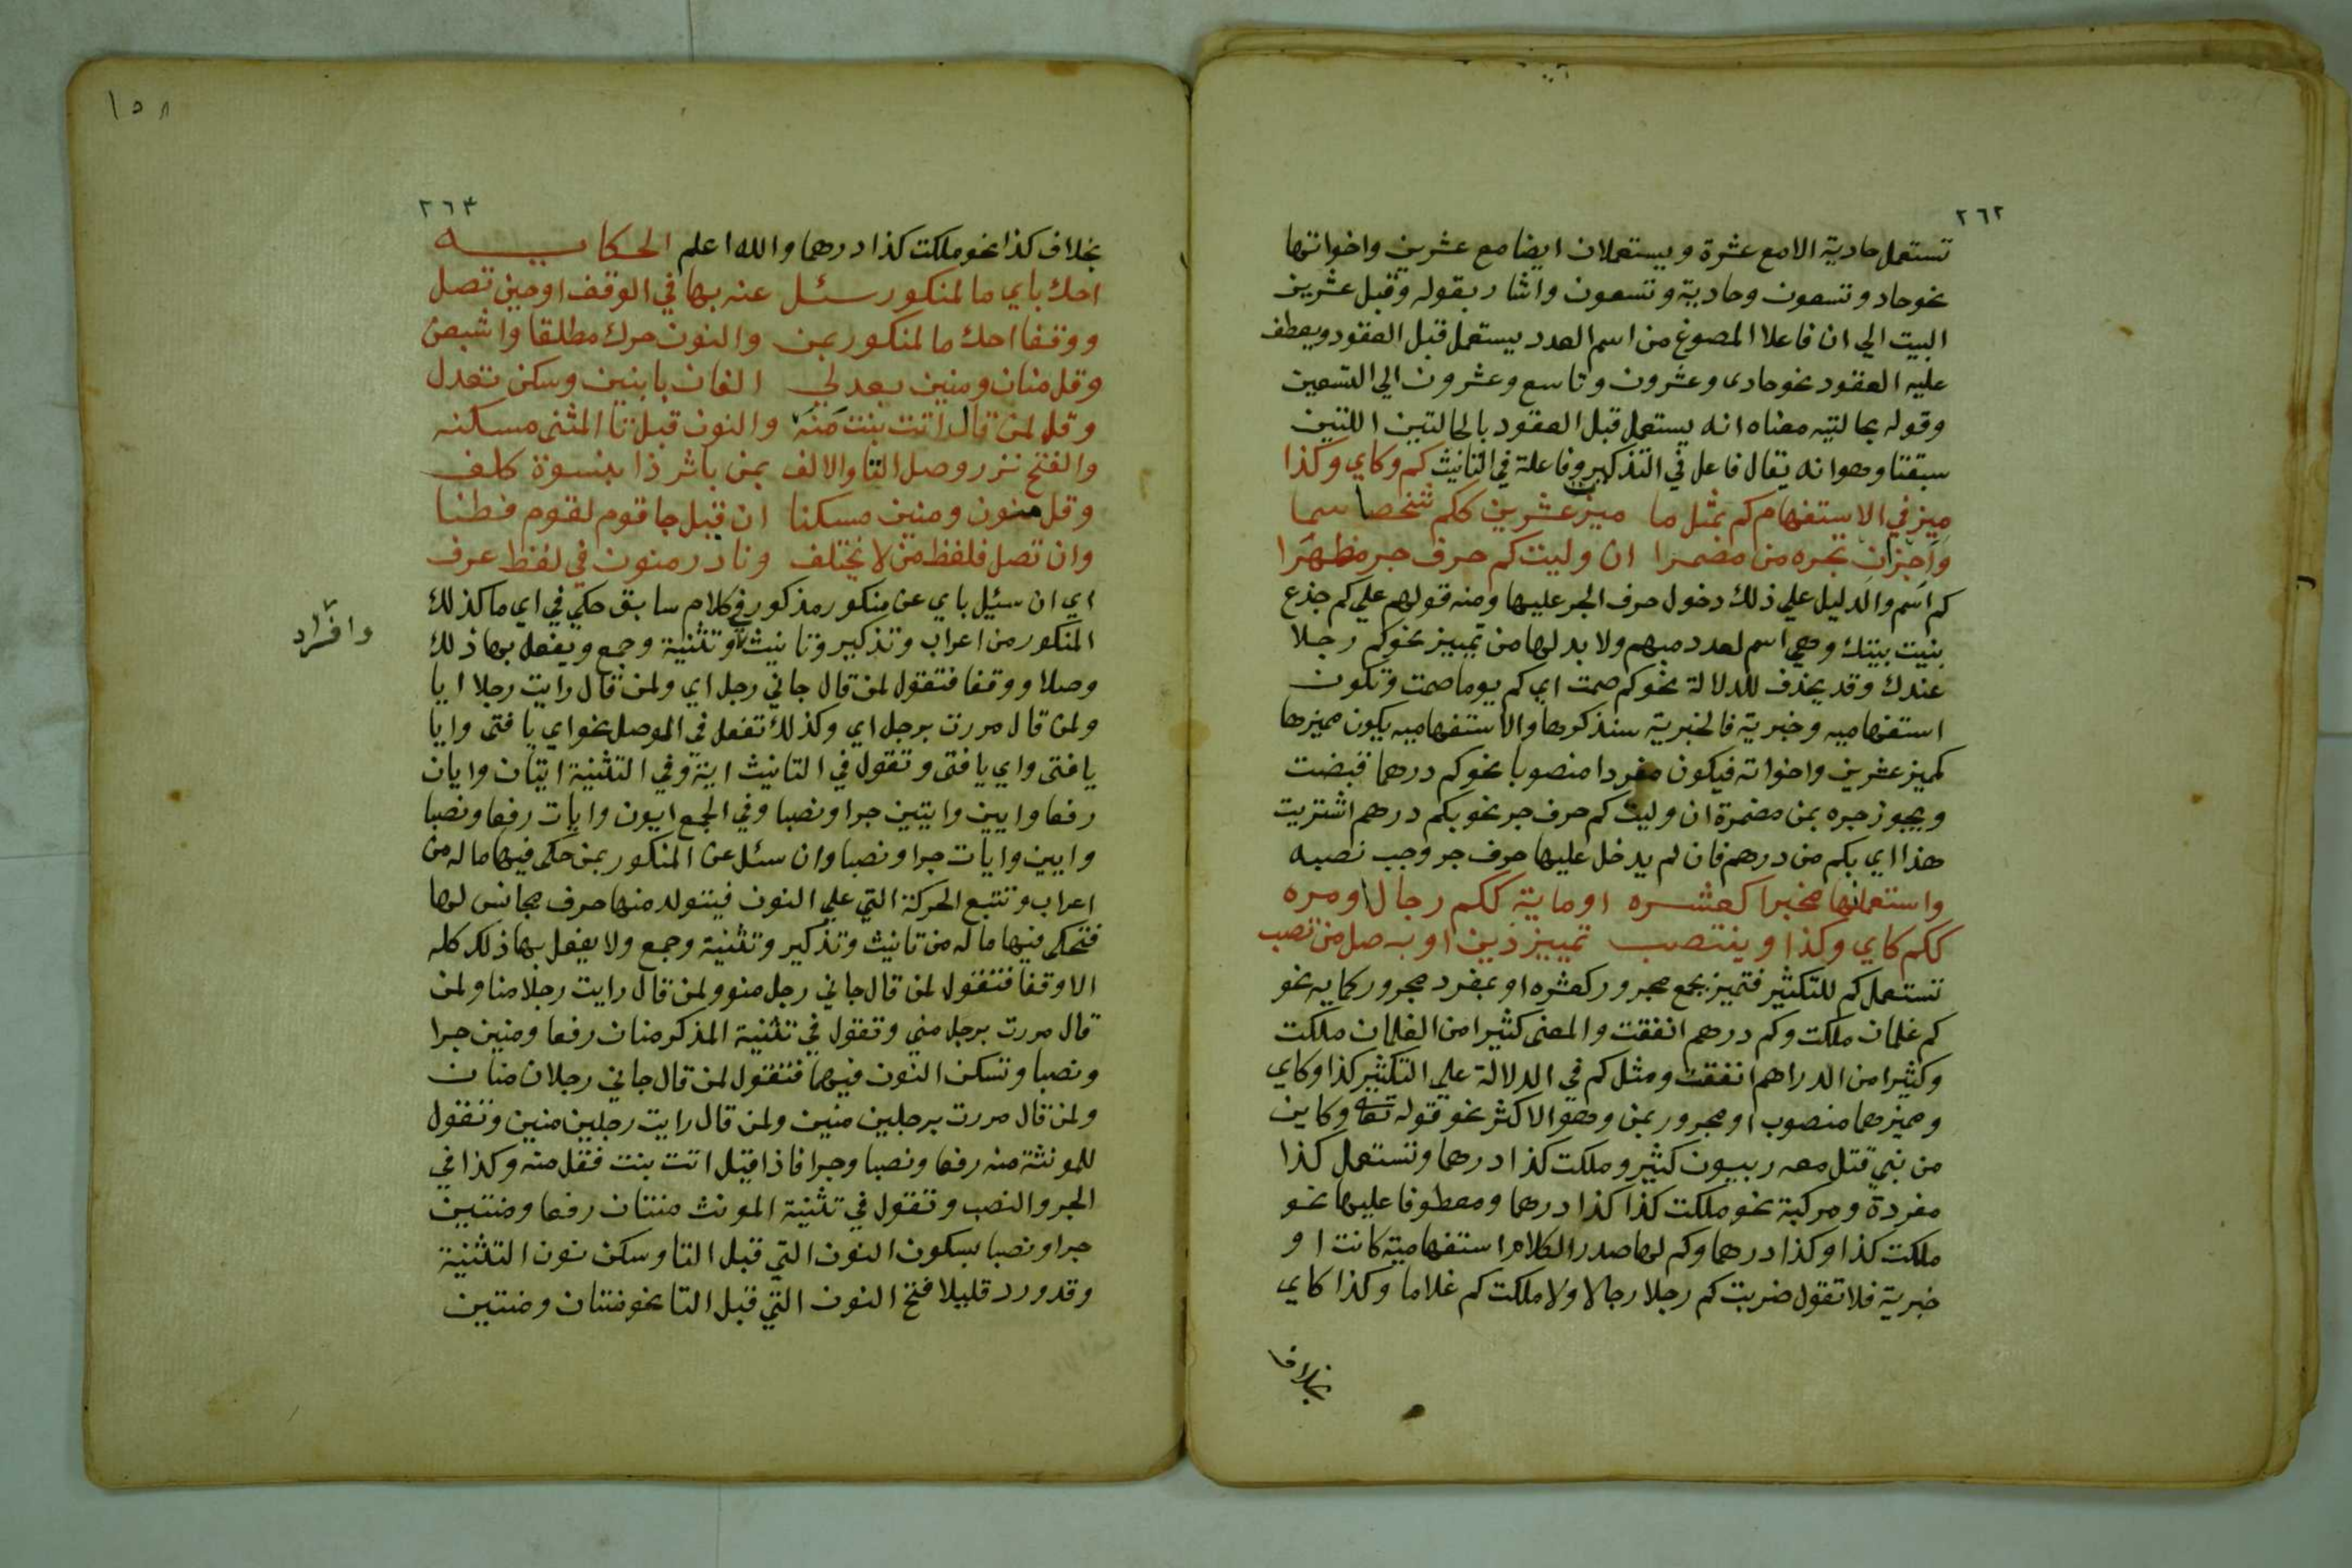 ٢٦٢
تستعمل حادية الامع عشرة ويستعملان ايضا مع عشرين واخواتها
نحو حاد وتسعون وحادية وتسعون واشار بقوله وقبل عشرين
البيت الي ان فاعلا المصوغ من اسم العدد يستعمل قبل العقود ويعطف
عليه العقود نحو حادى وعشرون وتاسع وعشرون الي التسعين
وقوله بحالتيه معناه انه يستعمل قبل العقود بالحالتين اللتين
سبقتا وهوانه يقال فاعل في التذكير وفاعلة في التانيث كم وكاي وكذا
ميز في الاستفهام كم بمثل ما ميزت عشرين ككم شخصا سما
واجزان تجره من مضمرا ان وليت كم حرف جر مظهرا
كم اسم والدليل علي ذلك دخول حرف الجر عليها ومنه قولهم علي كم جذع
بنيت بيتك وهي اسم لعدد مبهم ولا بد لها من تمييز نحوكم رجلا
عندك وقد يحذف للدلالة نحو كم صمت اي كم يوما صمت وتكون
استفهاميه وخبرية فالخبرية سنذكرها والاستفهاميه يكون مميزها
كميز عشرين واخواته فيكون مفردا منصوبا نحوكم درهما قبضت
ويجوز جره بمن مضمرة ان وليت كم حرف جر نحو بكم درهم اشتريت
هذا اي بكم من درهم فان لم يدخل عليها حرف جر وجب نصبه
واستعملنها مخبرا كعشره اوماية ككم رجال اومره
ككم كاي وكذا وينتصب تمييز ذين او به صل من تصب
تستعمل كم للتكثير فتميز بجمع مجرور كعشره او بمفرد مجرور كمايه نحو
كم غلمان ملكت وكم درهم انفقت والمعنى كثيرا من الغلمان ملكت
وكثيرا من الدراهم انفقت ومثل كم في الدلالة علي التكثير كذا وكاي
ومميزهما منصوب او مجرور بمن وهو الاكثر نحو قوله تعالى وكاين
من نبي قتل معه ربيون كثير وملكت كذا درهما وتستعمل كذا
مفردة ومركبة نحو ملكت كذا كذا درهما ومعطوفا عليها نحو
ملكت كذا وكذا درهما وكم لها صدر الكلام استفهامية كانت او
خبرية فلا تقول ضربت كم رجلا رجالا ولا ملكت كم غلاما وكذا كاي
بخلاف
١٥٨
٢٦٣
بخلاف كذا نحو ملكت كذا درهما والله اعلم الحكايه
احك باي ما لمنكور سئل عنه بها في الوقف او حين تصل
ووقفا احك ما لمنكور بمن والنون حرك مطلقا واشبعن
وقل منان ومنين بعد لي الفان بابنين وسكن تعدل
وقل لمن قال اتت بنت منه والنون قبل تا المثنى مسكنه
والفتح نزر وصل التا والالف بمن باثر ذا بنسوة كلف
وقل منون ومنين مسكنا ان قيل جا قوم لقوم فطنا
وان تصل فلفظ من لا يختلف ونادر منون في لفظ عرف
اي ان سئيل باي عن منكور مذكور في كلام سابق حكي في اي ما كذلك
المنكور من اعراب وتذكير وتانيث وتثنية وجمع ويفعل بها ذلك
وافراد
وصلا ووقفا فتقول لمن قال جاني رجل اي ولمن قال رايت رجلا ايا
ولمن قال مررت برجل اي وكذلك تفعل في الموصل نحو اي يا فتى وايا
يا فتى واي يا فتى وتقول في التانيث اية وفي التثنية ايتان وايان
رفعا وايين وايتين جرا ونصبا وفي الجمع ايون وايات رفعا ونصبا
وايين وايات جرا ونصبا وان سئل عن المنكور بمن حكى فيها ما له من
اعراب وتتبع الحركة التي علي النون فيتولد منها حرف مجانس لها
فتحكى فيها ما له من تانيث وتذكير وتثنية وجمع ولا يفعل بها ذلك كله
الا وقفا فتقول لمن قال جاني رجل منو ولمن قال رايت رجلا منا ولمن
قال مررت برجل مني وتقول في تثنية المذكر منان رفعا ومنين جرا
ونصبا وتسكن النون فيهما فتقول لمن قال جاني رجلان منان
ولمن قال مررت برجلين منين ولمن قال رايت رجلين منين وتقول
للمونثة منه رفعا ونصبا وجرا فاذا قيل اتت بنت فقل منه وكذا في
الجر والنصب وتقول في تثنية المونث منتان رفعا ومنتين
جرا ونصبا بسكون النون التي قبل التا وسكن نون التثنية
وقد ورد قليلا فتح النون التي قبل التا نحو منتان ومنتين